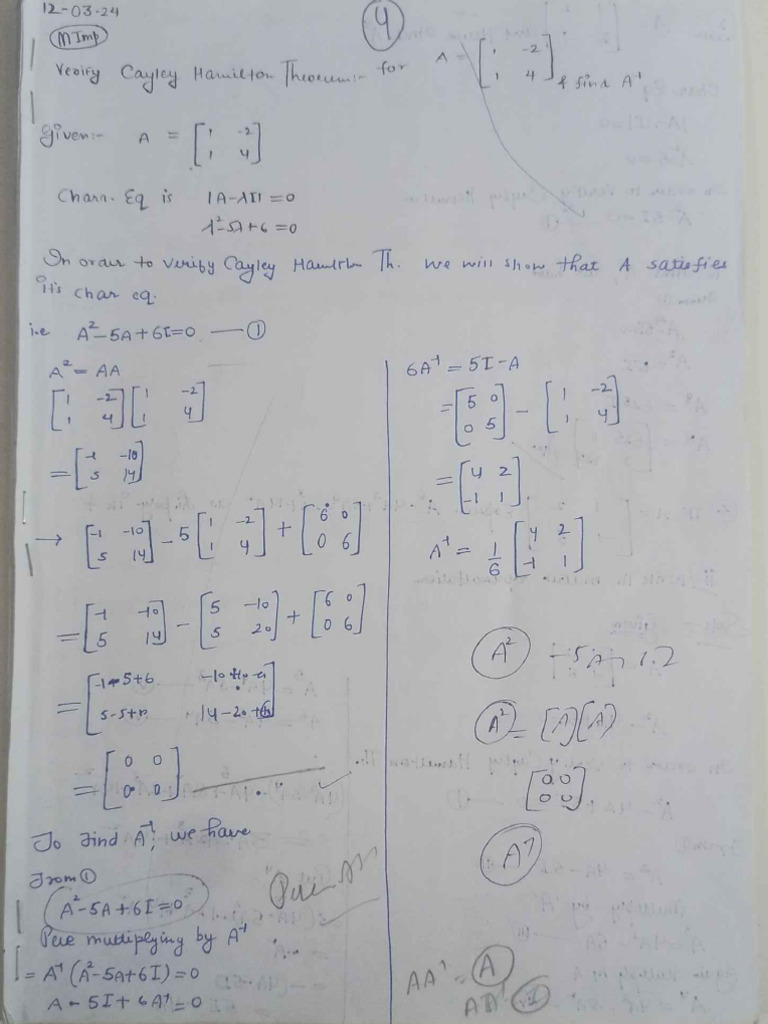 12-03-24
4
MImp
Verify Cayley Hamilton Theorem:- for A = [1 -2
1 4] & find A⁻¹
Given:- A = [1 -2
1 4]
Charn. Eq is |A-λI| = 0
λ²-5λ+6=0
In order to verify Cayley Hamilton Th. we will show that A satisfies
it's char eq.
i.e A²-5A+6I=0 — ①
A² = AA
[1 -2
1 4] [1 -2
1 4]
= [-1 -10
5 14]
→ [-1 -10
5 14] - 5 [1 -2
1 4] + [6 0
0 6]
= [-1 -10
5 14] - [5 -10
5 20] + [6 0
0 6]
= [-1-5+6 -10+10+0
5-5+0 14-20+6]
= [0 0
0 0]
To find A⁻¹, we have
From ①
A²-5A+6I=0
Pere multiplying by A⁻¹
= A⁻¹(A²-5A+6I)=0
A-5I+6A⁻¹=0
6A⁻¹ = 5I-A
= [5 0
0 5] - [1 -2
1 4]
= [4 2
-1 1]
A⁻¹ = 1/6 [4 2
-1 1]
A²
A² = [A][A]
[0 0
0 0]
A⁻¹
AA⁻¹ = A
AA⁻¹ = I